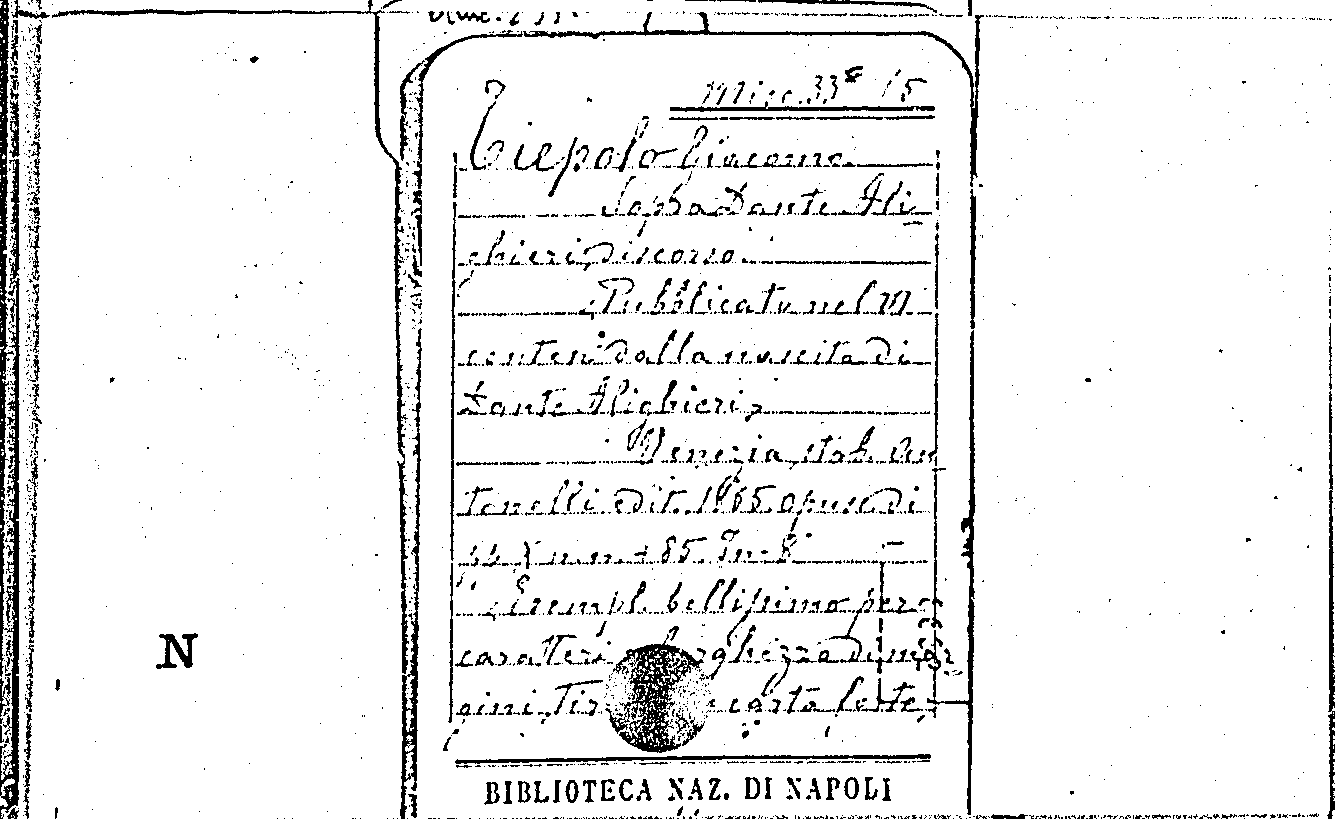 Misc. 33 15
Tiepolo Giacomo
Sopra Dante Ali
ghieri, Discorso.
Pubblicato nel VI
centen° dalla nascita di
Dante Alighieri,
Venezia, stab. An
tonelli edit. 1865 opusc. di
pp. X n.n. + 85. In-8°
Esempl. bellissimo per
caratteri larghezza di mar
gini. Tir carta forte
N
BIBLIOTECA NAZ. DI NAPOLI